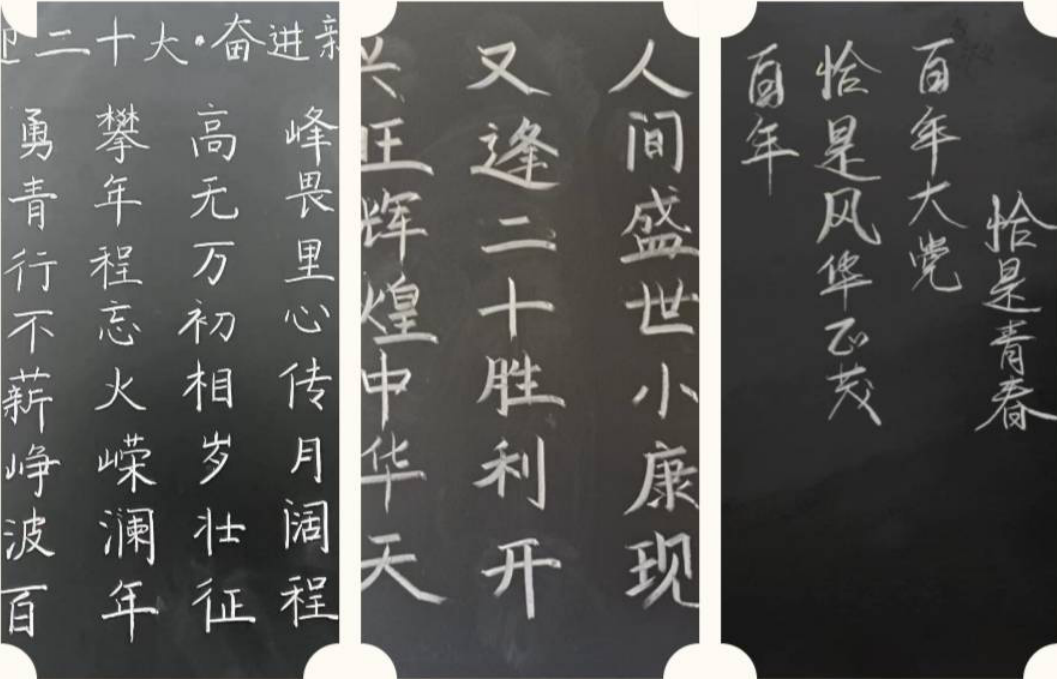 迎二十大·奋进新
勇攀高峰
青年无畏
行程万里
不忘初心
薪火相传
峥嵘岁月
波澜壮阔
百年征程
人间盛世小康现
又逢二十胜利开
兴旺辉煌中华天
恰是青春
百年大党
恰是风华正茂
百年